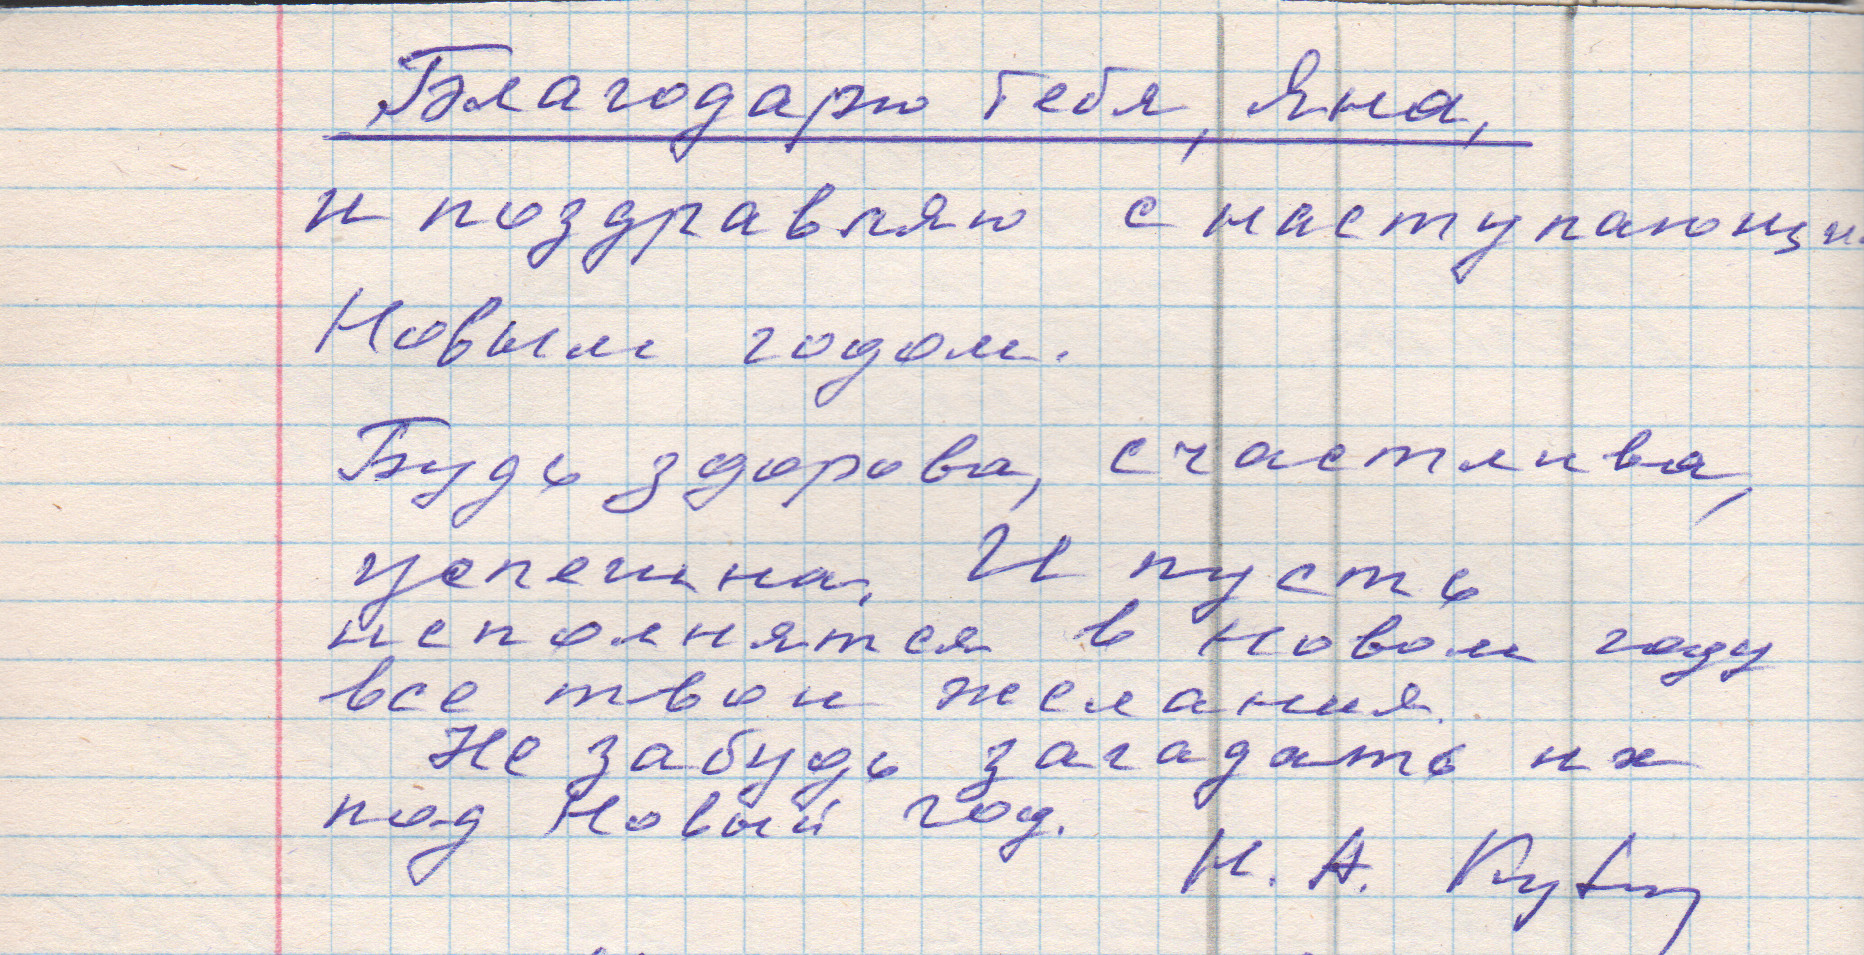 Благодарю тебя, Яна,
и поздравляю с наступающи
Новым годом.
Будь здорова, счастлива,
успешна. И пусть
исполнятся в новом году
все твои желания.
Не забудь загадать их
под Новый год.
Н. А.